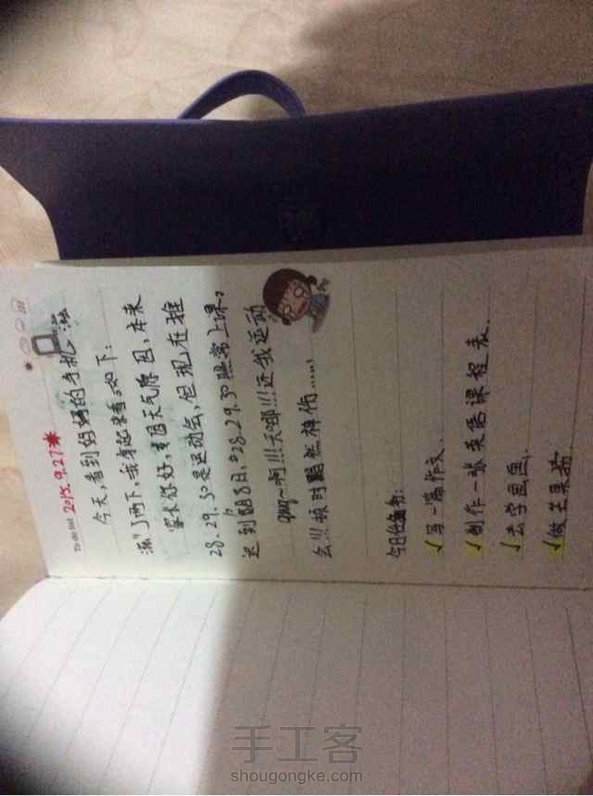 To do list 2015.9.27
今天,看到妈妈的手机
派"了两下,我看起来看,如下:
家长你好,因天气原因,本来
28.29.30是运动会,但现在推
迟到8日,28.29.30照常上课,
啊!!!天哪!!!还我运动
会!!!顿时黯然神伤......
今日任务:
√写一篇作文.
√创作一张英语课程表.
√去学画画.
√做芒果捞.
手工客
shougongke.com